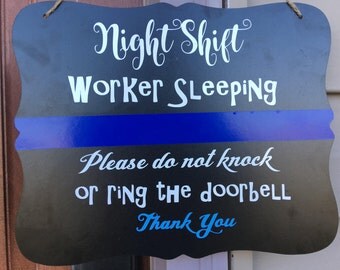 Night Shift
Worker Sleeping
Please do not knock
or ring the doorbell
Thank You